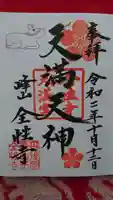 奉拝
令和二年十月十三日
天満天神
峰山
全性寺